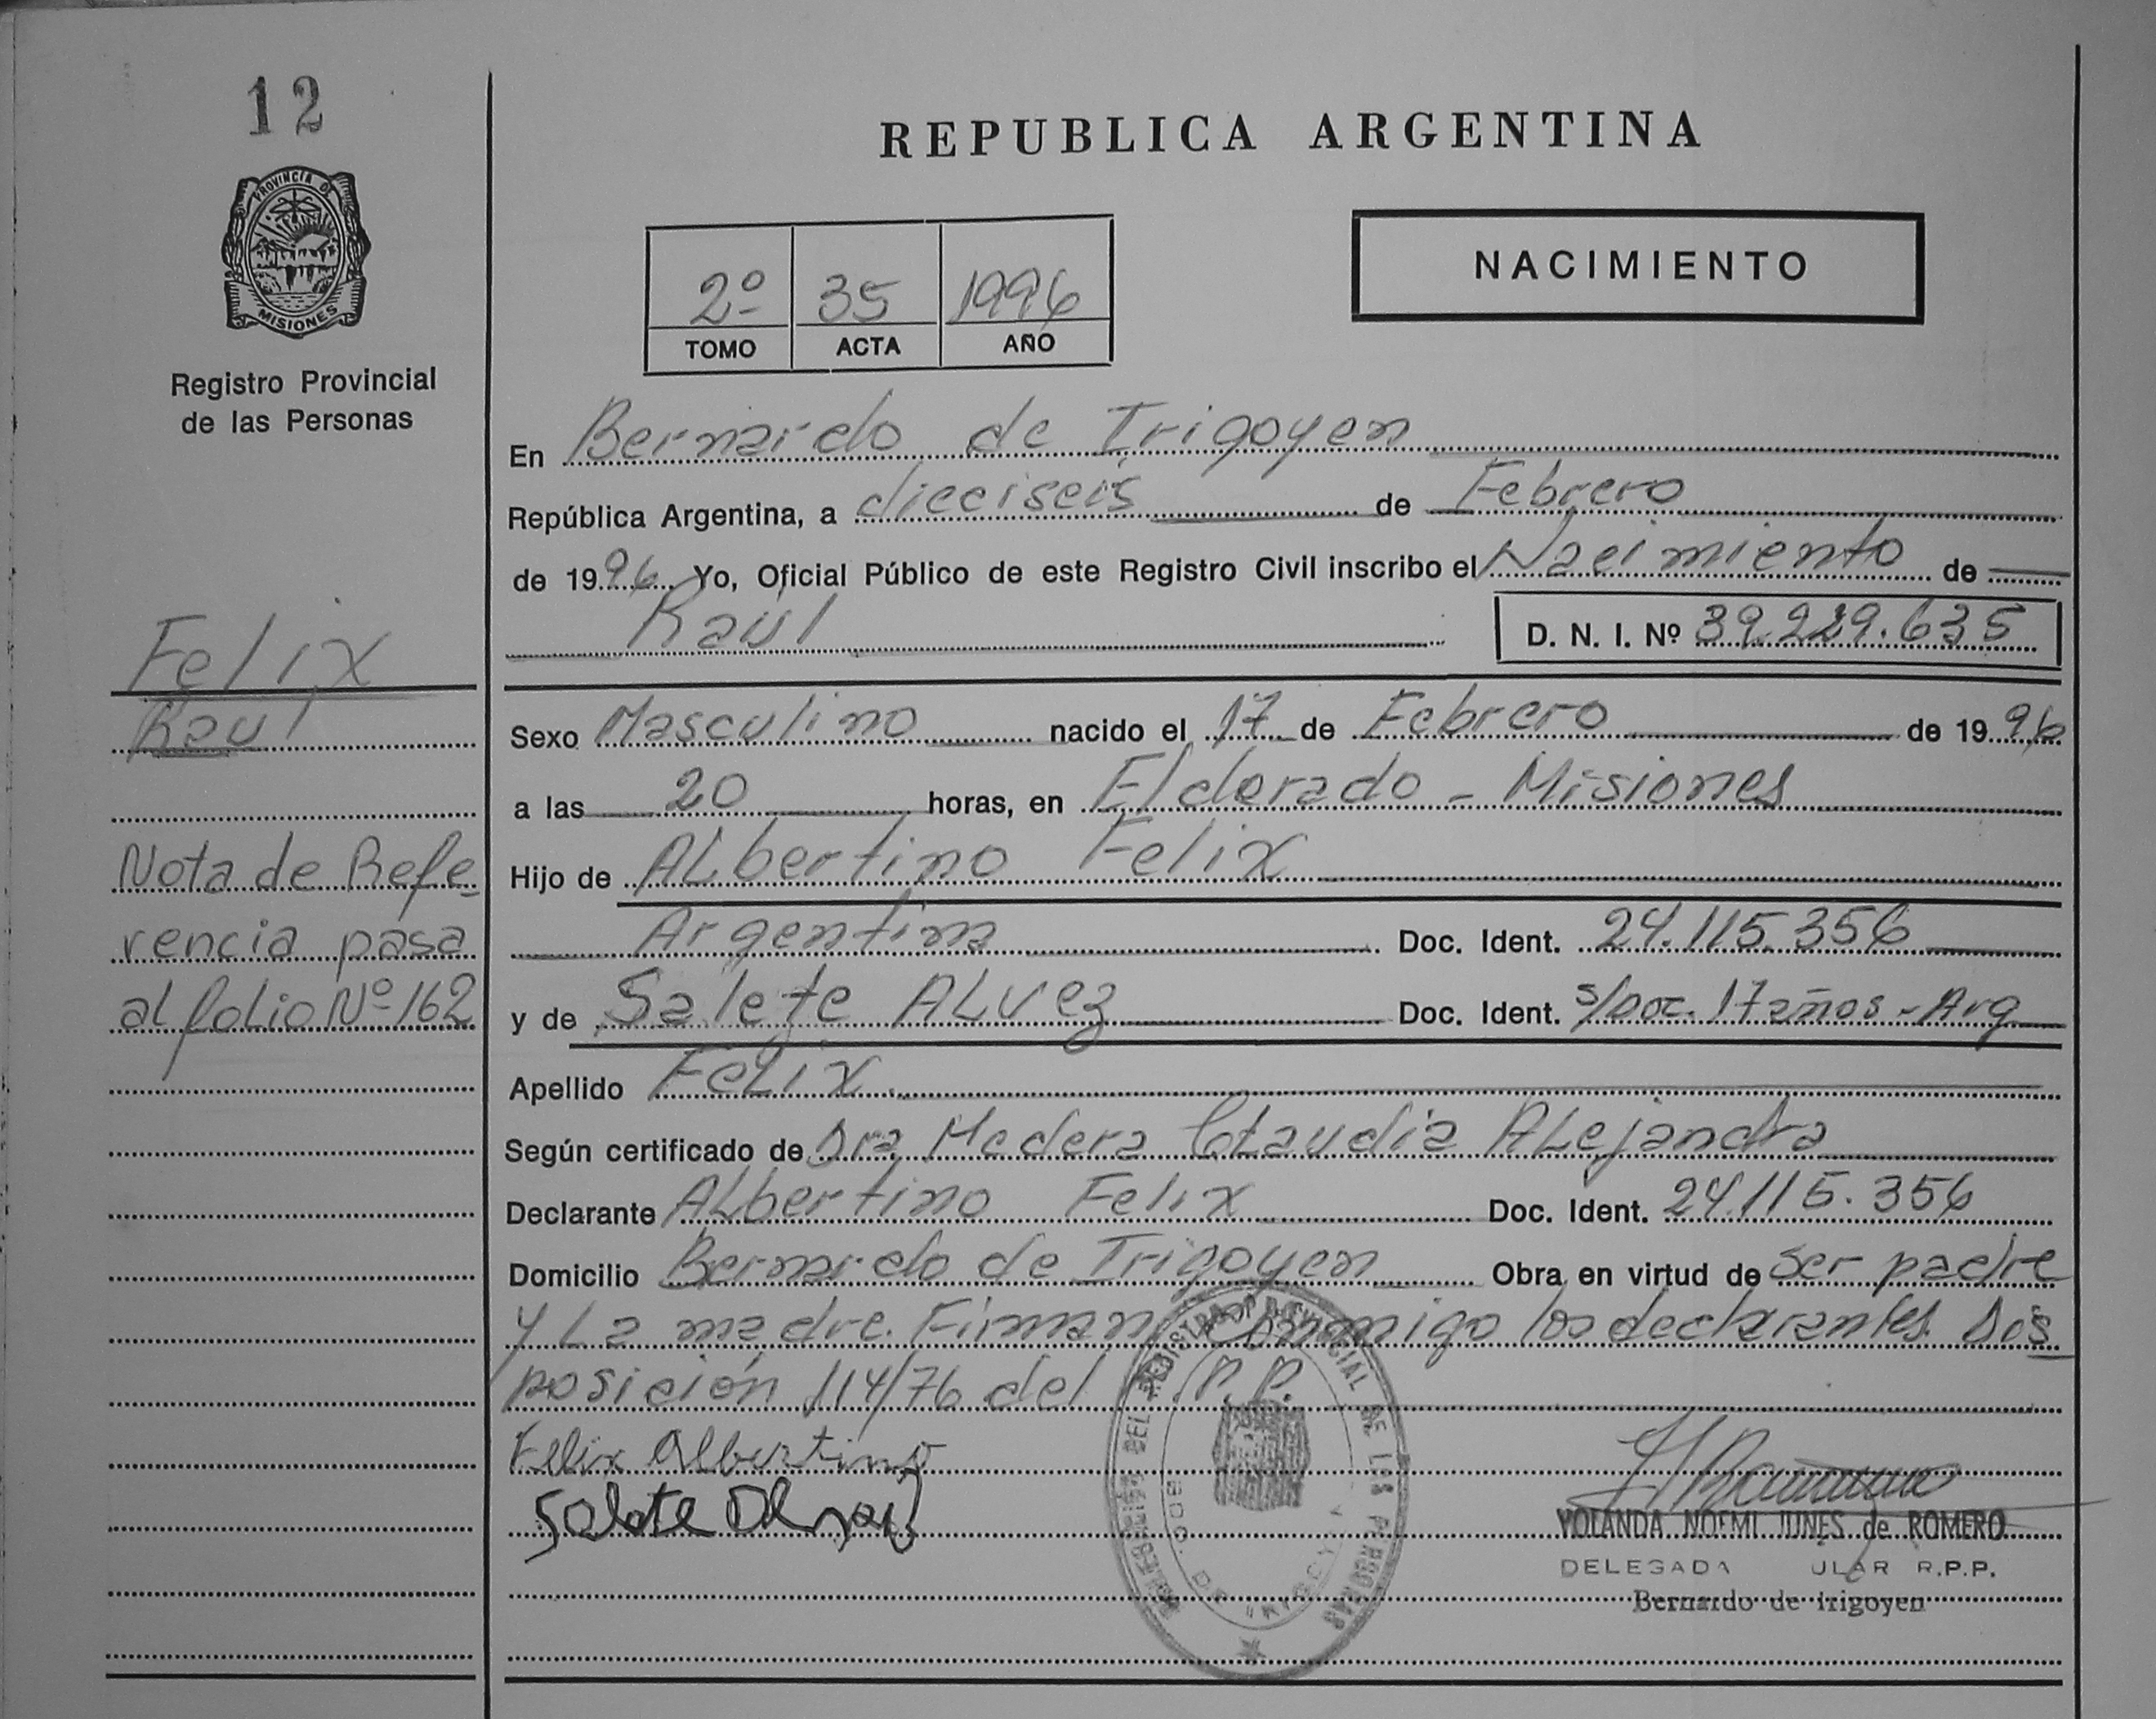 12
REPUBLICA ARGENTINA
PROVINCIA DE
MISIONES
NACIMIENTO
2º 35 1996
TOMO ACTA AÑO
Registro Provincial
de las Personas
En Bernardo de Irigoyen
República Argentina, a dieciseis de Febrero
de 1996 Yo, Oficial Público de este Registro Civil inscribo el Nacimiento de
Raúl D. N. I. Nº 39.229.635
Felix
Raul
Sexo Masculino nacido el 17 de Febrero de 1996
a las 20 horas, en Eldorado - Misiones
Nota de Refe-
rencia pasa
al folio Nº 162
Hijo de ALbertino Felix
Argentina Doc. Ident. 24.115.356
y de Salete ALvez Doc. Ident. s/Doc. 17 años - Arg
Apellido FeLix
Según certificado de Dra Medera CLaudia ALejandra
Declarante ALbertino Felix Doc. Ident. 24.115.356
Domicilio Bernardo de Irigoyen Obra en virtud de ser padre
y La madre. Firman conmigo los declarantes. Dis
posición 114/76 del R.P.P.
Felix Albertino
Salete
YOLANDA NOEMI JUNES de ROMERO
DELEGADA ULAR R.P.P.
Bernardo de Irigoyen
DEL REGISTRO PROVINCIAL DE LAS PERSONAS
BDO. DE IRIGOYEN